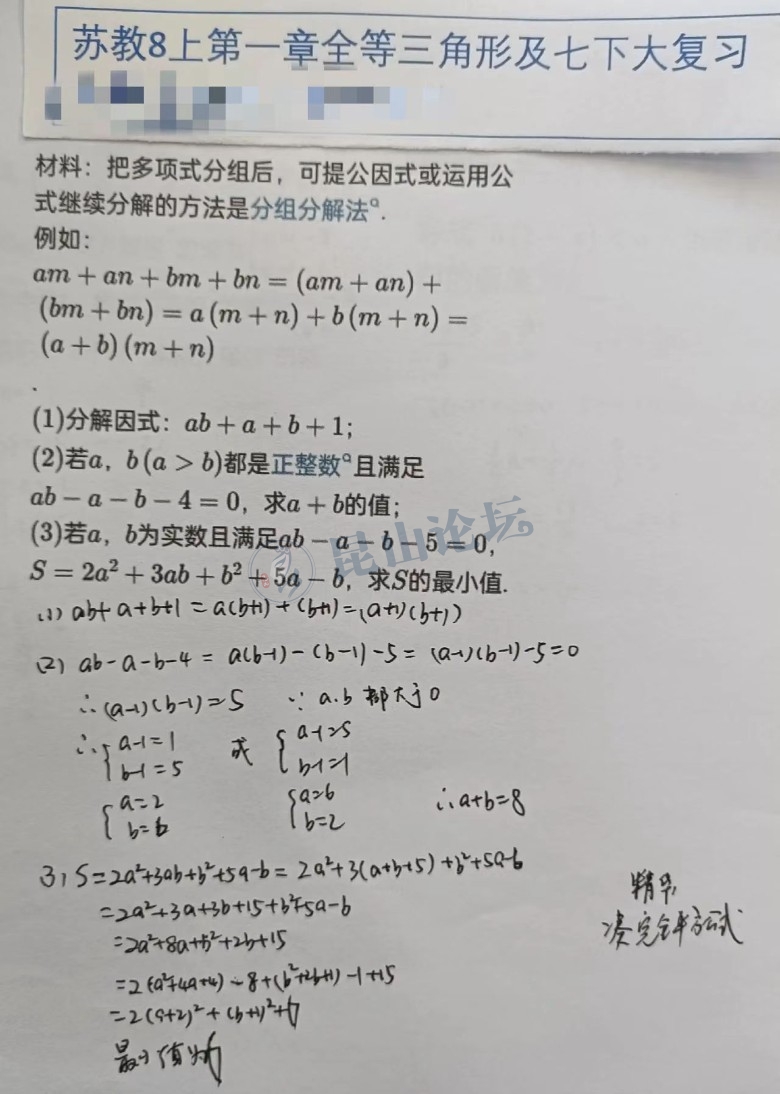 苏教8上第一章全等三角形及七下大复习
材料：把多项式分组后，可提公因式或运用公
式继续分解的方法是分组分解法.
例如：
am + an + bm + bn = (am + an) +
(bm + bn) = a (m + n) + b (m + n) =
(a + b) (m + n)
.
(1)分解因式：ab + a + b + 1;
(2)若a，b (a > b)都是正整数且满足
ab − a − b − 4 = 0，求a + b的值；
(3)若a，b为实数且满足ab − a − b − 5 = 0,
昆山论坛
S = 2a² + 3ab + b² + 5a − b，求S的最小值.
(1) ab+a+b+1 = a(b+1)+(b+1)=(a+1)(b+1)
(2) ab-a-b-4 = a(b-1)-(b-1)-5 = (a-1)(b-1)-5=0
∴(a-1)(b-1)=5 ∵ a.b 都大于0
∴ { a-1=1 或 { a-1=5
b-1=5 b-1=1
{ a=2 { a=6 ∴a+b=8
b=6 b=2
3) S=2a²+3ab+b²+5a-b = 2a²+3(a+b+5)+b²+5a-b
=2a²+3a+3b+15+b²+5a-b
=2a²+8a+b²+2b+15
=2(a²+4a+4)-8+(b²+2b+1)-1+15
=2(a+2)²+(b+1)²+6
最小值为6
精华
凑完全平方式